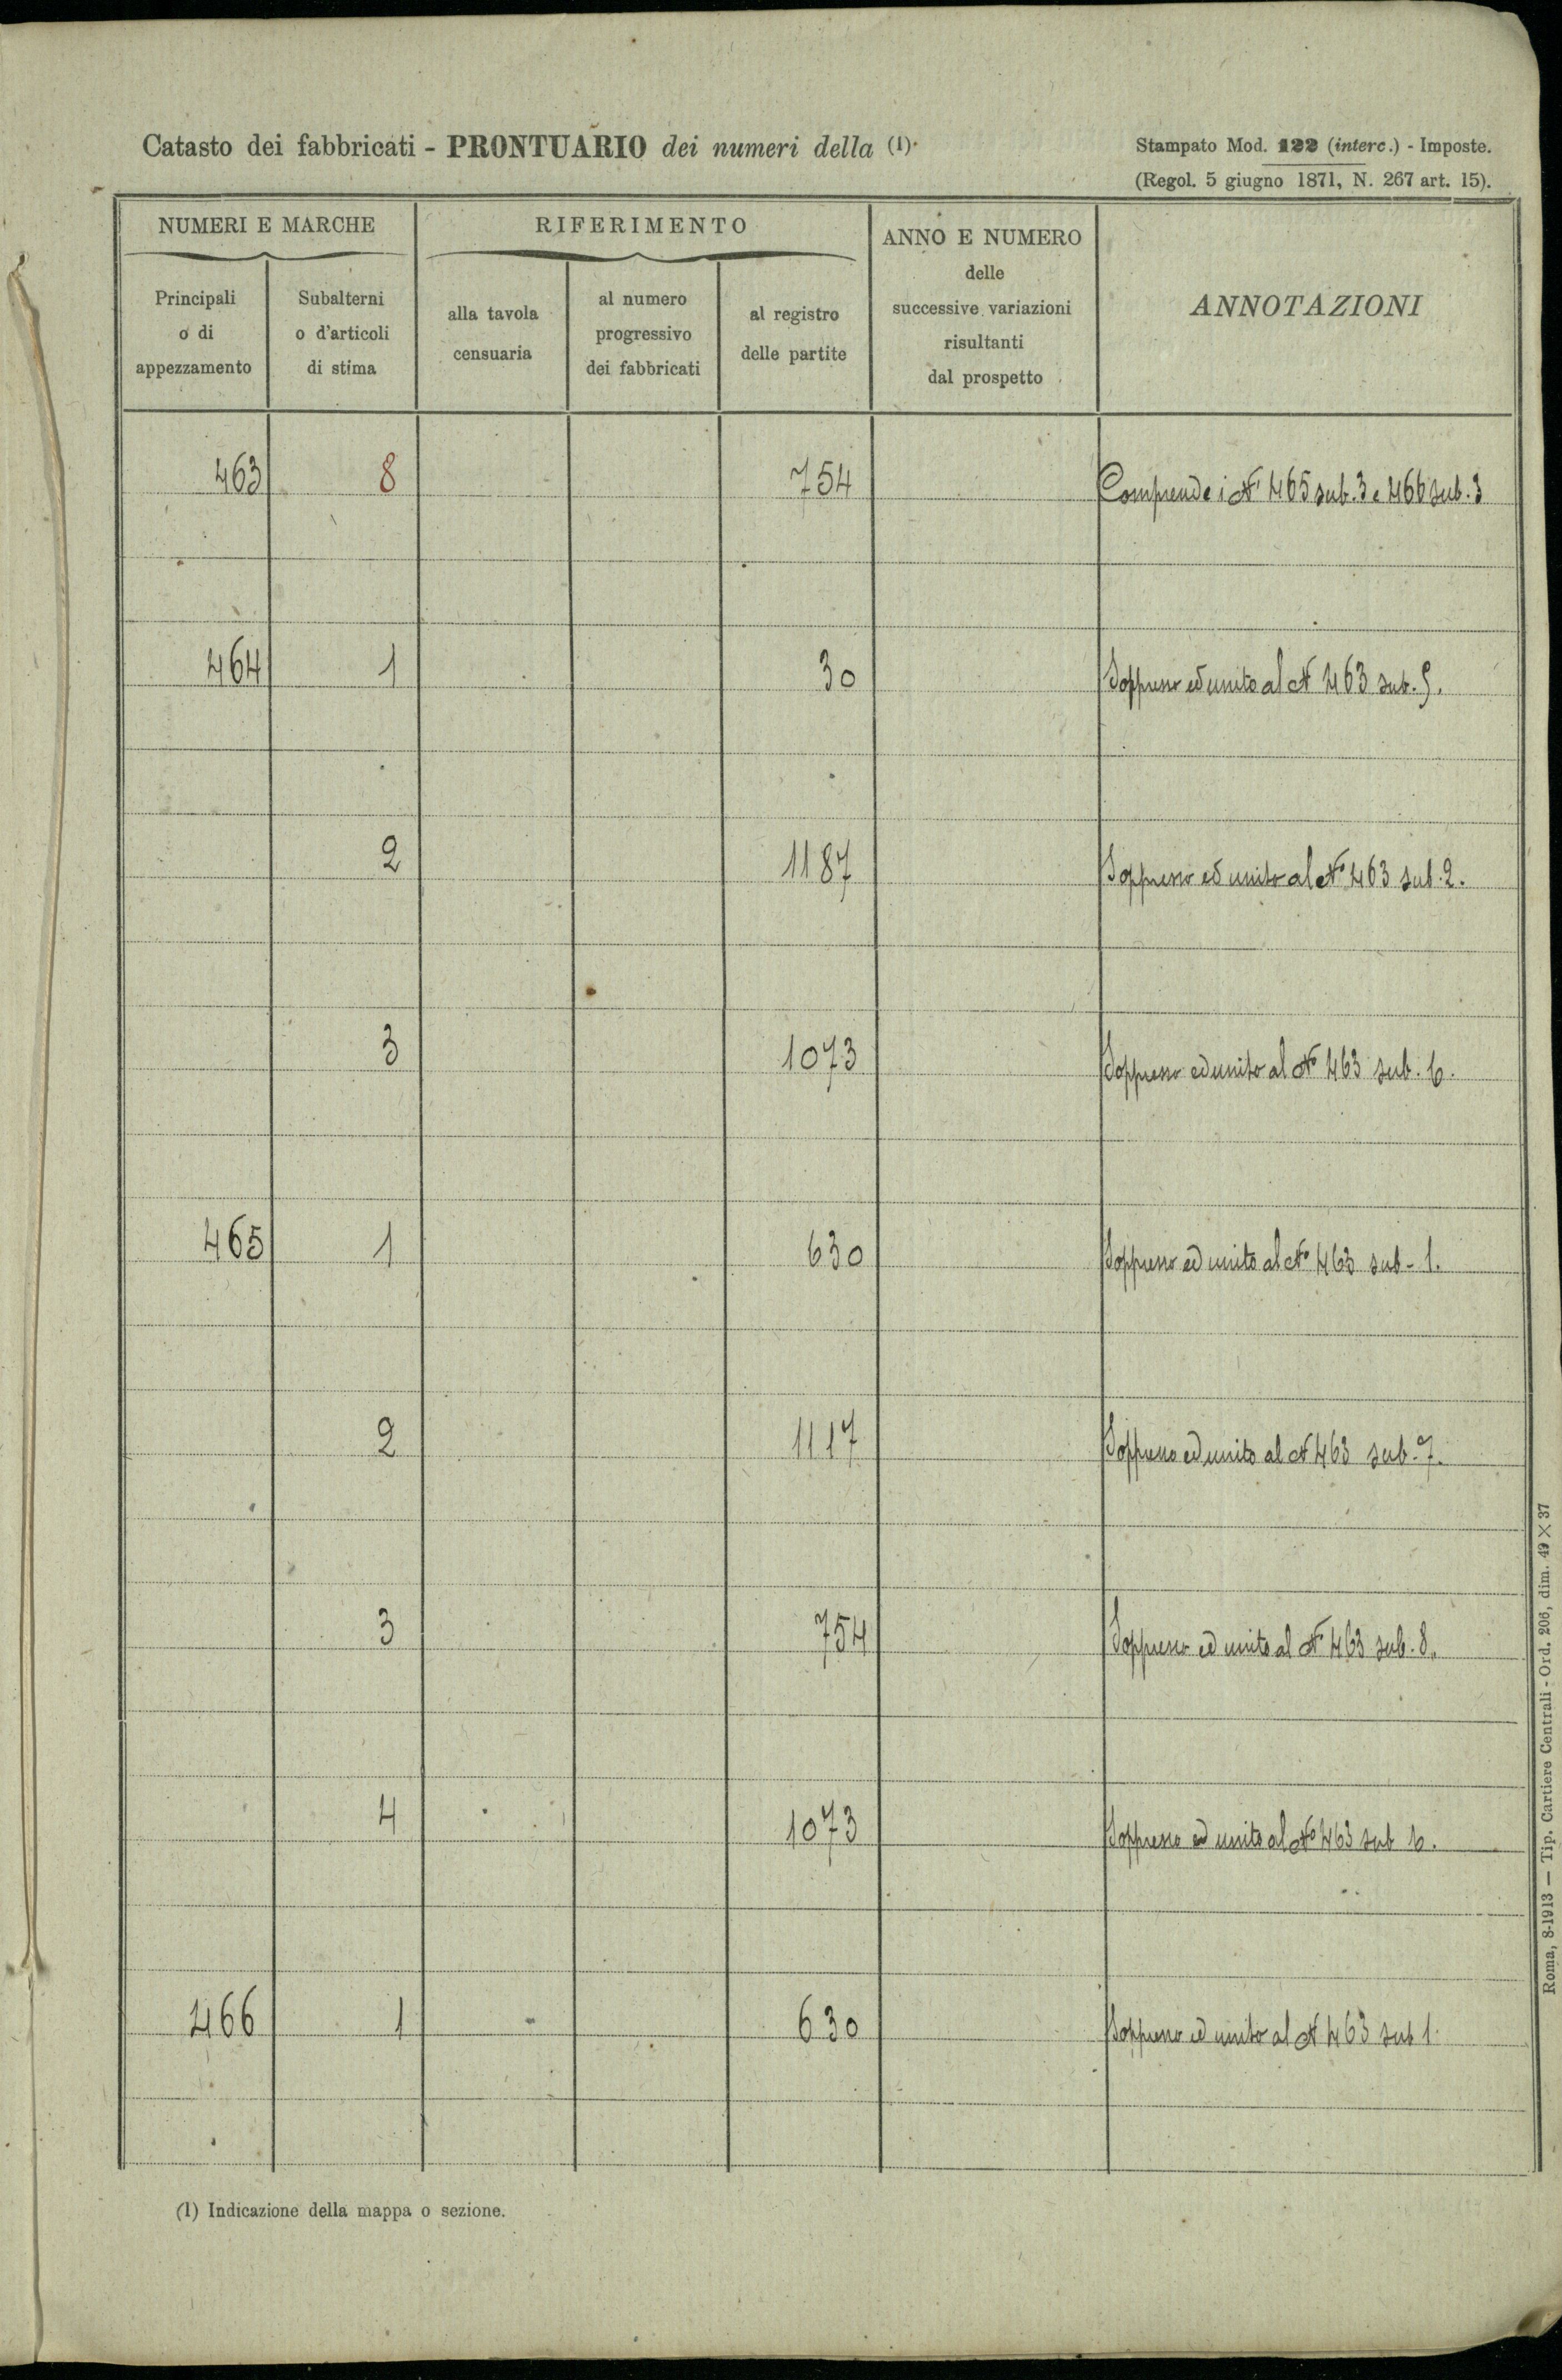 Catasto dei fabbricati - PRONTUARIO dei numeri della (1).
Stampato Mod. 122 (interc.) - Imposte.
(Regol. 5 giugno 1871, N. 267 art. 15).
NUMERI E MARCHE
RIFERIMENTO
ANNO E NUMERO
delle
successive variazioni
risultanti
dal prospetto
ANNOTAZIONI
Principali
o di
appezzamento
Subalterni
o d'articoli
di stima
alla tavola
censuaria
al numero
progressivo
dei fabbricati
al registro
delle partite
463 8 754 Comprende i Ni 465 sub. 3 e 466 sub. 3
464 1 30 Soppresso ed unito al N 463 sub. 5.
2 1187 Soppresso ed unito al No 463 sub. 2.
3 1073 Soppresso ed unito al No 463 sub. 6.
465 1 630 Soppresso ed unito al No 463 sub - 1.
2 1117 Soppresso ed unito al N 463 sub. 7.
3 754 Soppresso ed unito al No 463 sub. 8.
4 1073 Soppresso ed unito al No 463 sub 6.
466 1 630 Soppresso ed unito al N 463 sub 1.
(1) Indicazione della mappa o sezione.
Roma, 8-1913 — Tip. Cartiere Centrali - Ord. 206, dim. 49 × 37